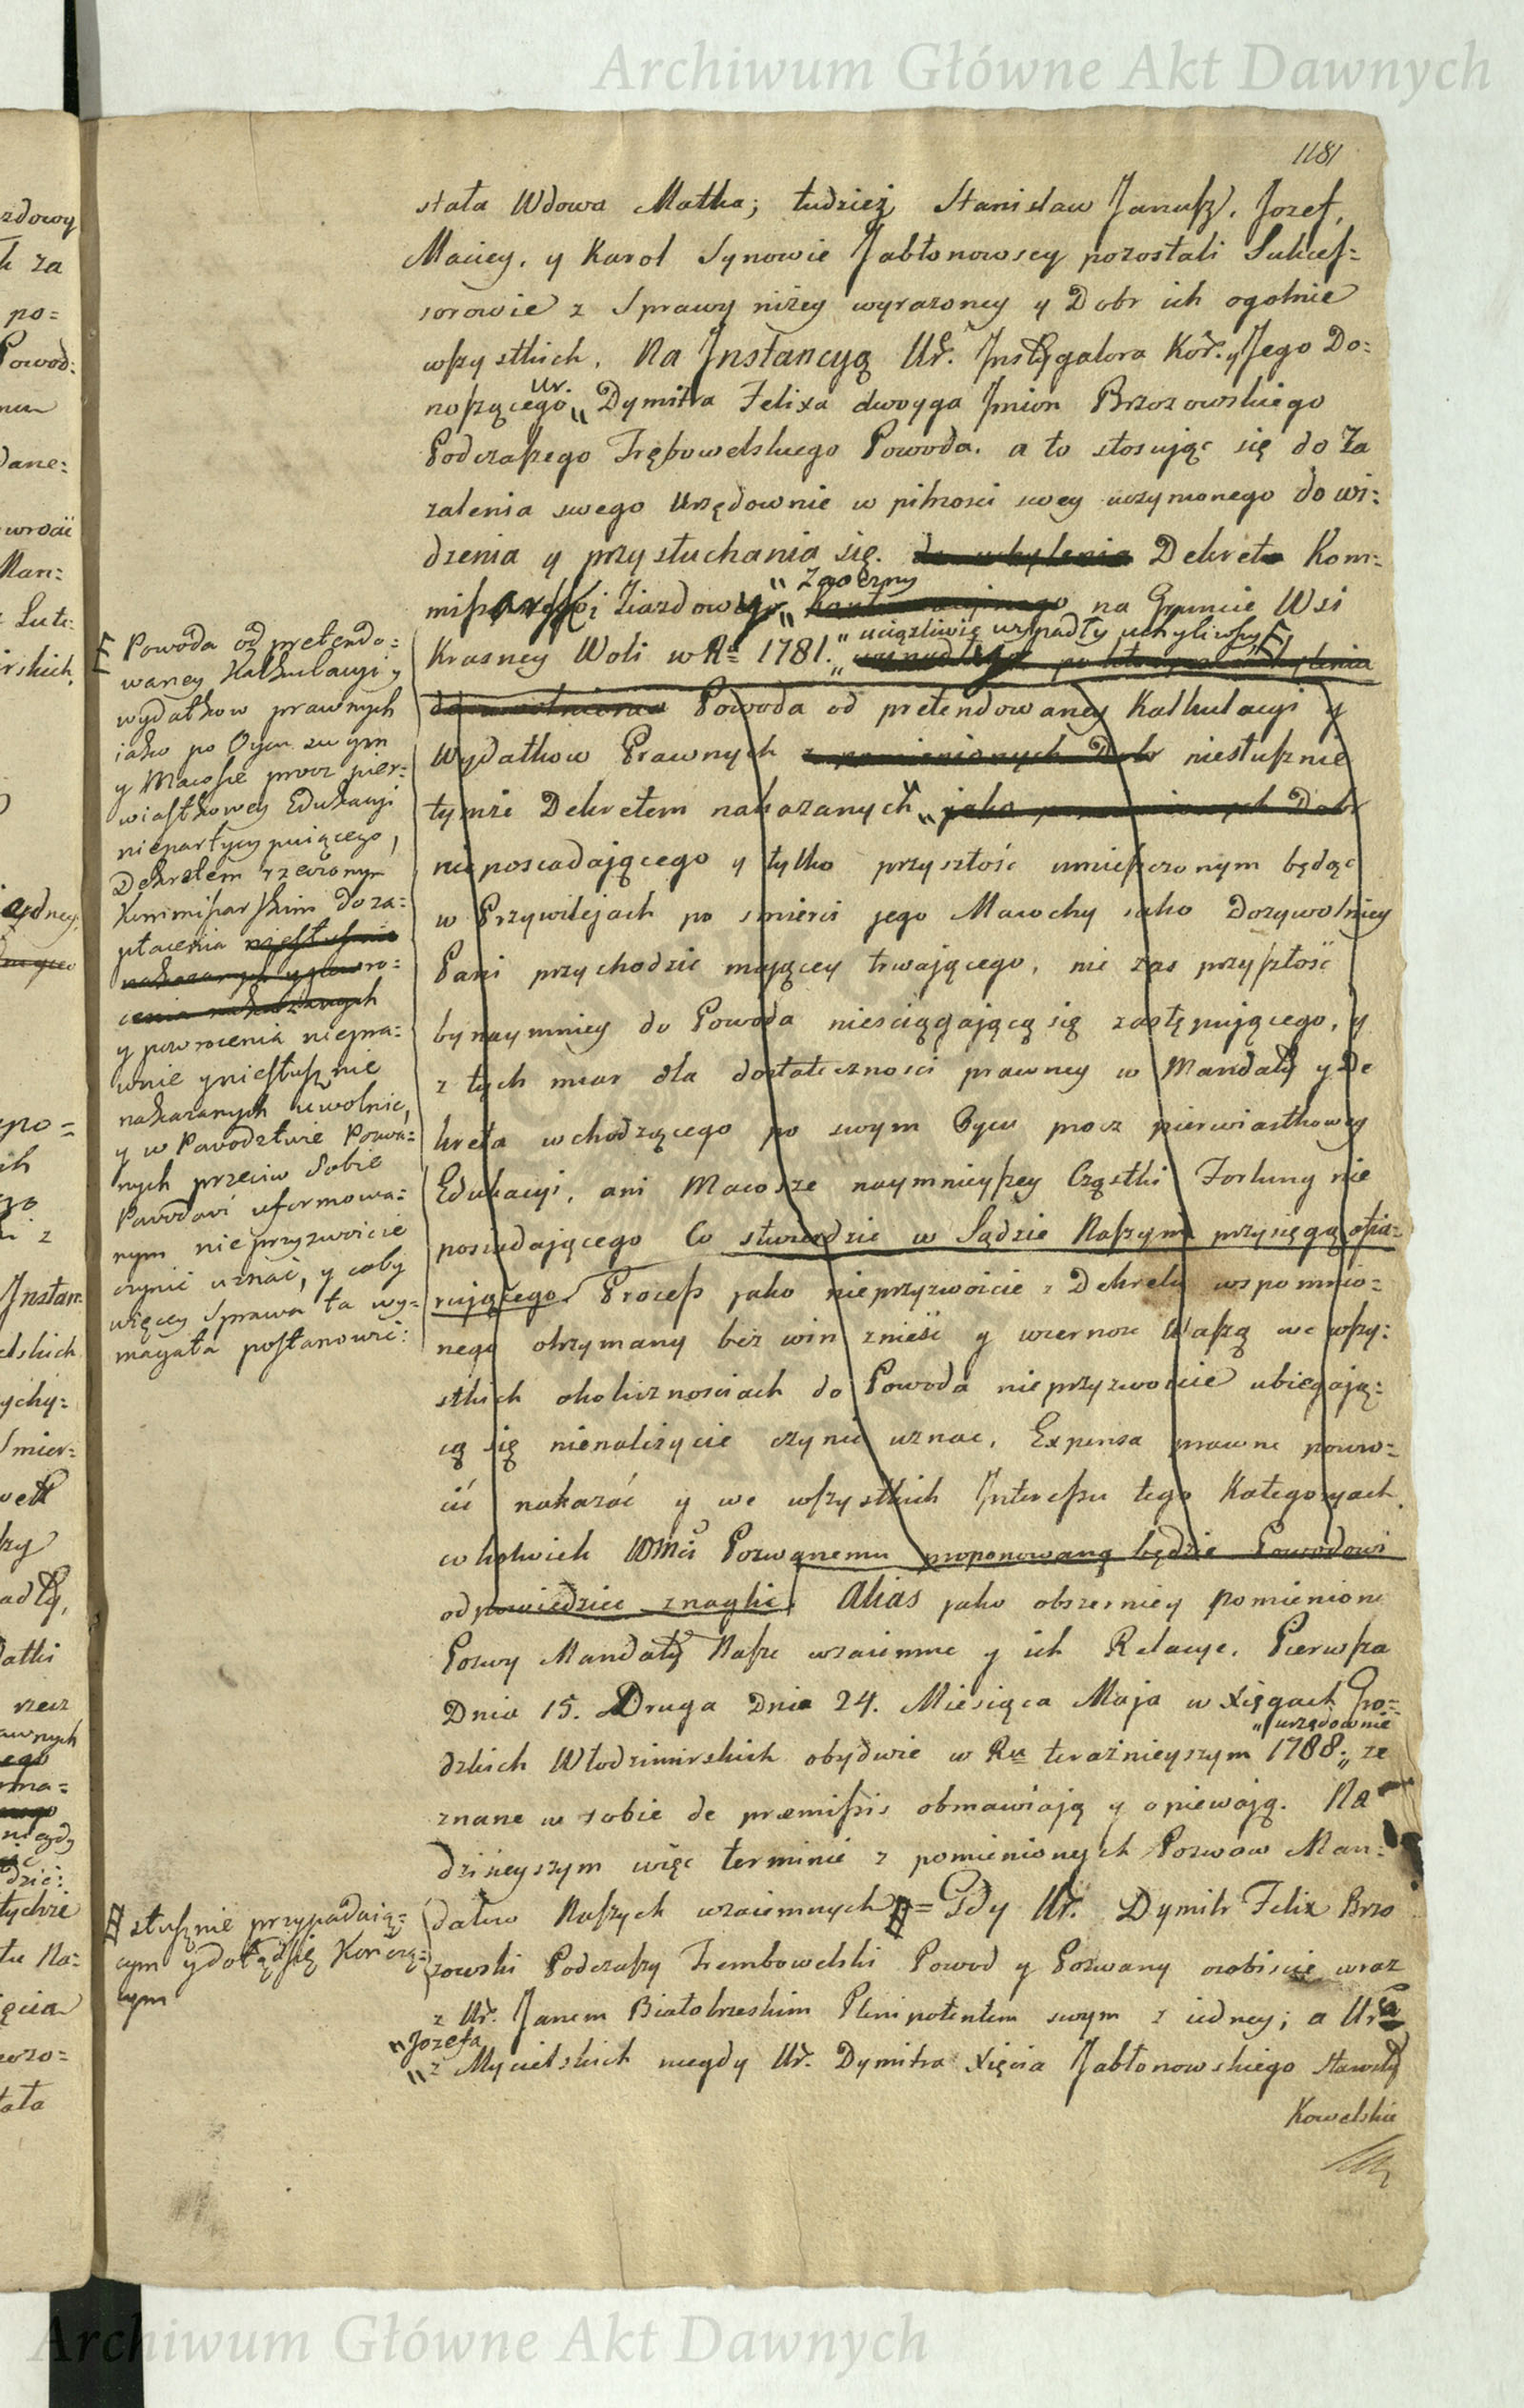 Archiwum Główne Akt Dawnych
1181
stała Wdowa Matka; tudzież Stanisław Janusz, Jozef,
Maciey, y Karol Synowie Jabłonowscy pozostali Sukces=
sorowie z Sprawy niżey wyrazoney y Dobr ich ogolnie
wszystkich. Na Instancyą Ur. Instygatora Kor. y Jego Do=
noszącego Ur. Dymitra Felixa dwoyga Imion Brzozowskiego
Podczaszego Trębowelskiego Powoda. a to stosując się do Za
zalenia swego Urzędownie w pilnosci swey uczynionego do wi=
dzenia y przysłuchania się. do uchylenia Dekretu Kom=
missarskiego Ziazdowego Zaoczny na Gruncie Wsi
Krasney Woli w Rᵘ 1781. uciązliwie wypadły uchyliwszy
Powoda od pretendowaney Kalkulacyi y
Wydatkow Prawnych z pomienionych Dobr niesłusznie
tymże Dekretem nakazanych jako pomienionych Dobr
nieposiadającego y tylko przyszłość umieszczonym będąc
w Przywilejach po smierci jego Macochy jako Dozywotniey
Pani przychodzić mającey trwającego, nie zas przyszłość
bynaymniey do Powoda niesciągającą się zastępującego, y
z tych miar dla dostateczności prawney w Mandaty y De
kreta wchodzącego po swym Oycu procz pierwiastkowey
Edukacyi, ani Macosze naymnieyszey Cząstki Fortuny nie
posiadającego Co stwierdzić w Sądzie Naszym przysięgą ofia=
rującego. Process jako nieprzyzwoicie z Dekretu wspomnio=
nego otrzymany bez win znieść y wiernosc Waszą we wszy=
stkich okolicznosciach do Powoda nieprzyzwoicie ubiegają=
cą się nienalizycie czynić uznac, Expensa prawne powro=
cić nakazać y we wszystkich Interessu tego Kategoryach
cokolwiek Wmci Pozwanemu proponowaną będzie Powodowi
odpowiedziec znaglic. Alias jako obszerniey pomienione
Pozwy Mandaty Nasze wzaiemne y ich Relacye. Pierwsza
Dnia 15. Druga Dnia 24. Miesiąca Maja w Xięgach Gro=
dzkich Włodzimirskich obydwie w Ru teraźnieyszym 1788. urzędownie ze
znane w sobie de præmissis obmawiają y opiewają. Na
dzisieyszym więc terminie z pomienionych Pozwow Man=
datow Naszych wzaiemnych = Gdy Ur. Dymitr Felix Brzo
zowski Podczaszy Trembowelski Powod y Pozwany osobiscie wraz
z Ur. Janem Białobrzeskim Plenipotentem swym z iedney; a Ura
Jozefa
z Mycielskich niegdy Ur. Dymitra Xięcia Jabłonowskiego Starosty
Kowelskie
Powoda od pretendo=
waney Kalkulacyi y
wydatkow prawnych
iako po Oycu swym
y Macosze procz pier=
wiastkowey Edukacyi
niepartycypuiącego,
Dekretem rzeczonym
Kommissarskim do za=
płacenia niesłusznie
nakazanych y powro=
cenia nakazanych
y powrocenia niepra=
wnie y niesłusznie
nakazanych uwolnic,
y w Powodztwie Pozwa=
nych przeciw Sobie
Powodowi uformowa=
nym nieprzyzwoicie
czynić uznać, y coby
więcey Sprawa ta wy=
magała postanowic:
słusznie przypadaią=
cym y dotąd się Kończą=
cym
Archiwum Główne Akt Dawnych